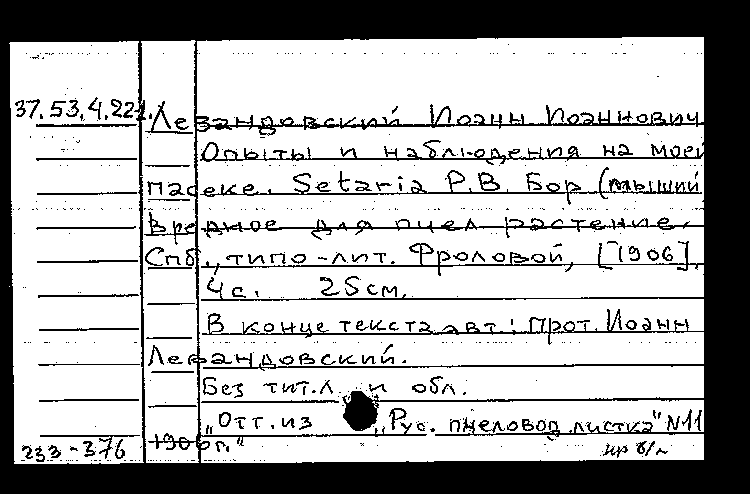 37.53.4.221. Левандовский Иоанн Иоаннович
Опыты и наблюдения на моей
пасеке. Setaria P.B. Бор (мыший)
вредное для пчел растение.
Спб., типо-лит. Фроловой, [1906].
4 с. 25 см.
В конце текста авт: Прот. Иоанн
Левандовский.
Без тит. л. и обл.
"Отт. из "Рус. пчеловод. листка" N11
1906 г."
233-376